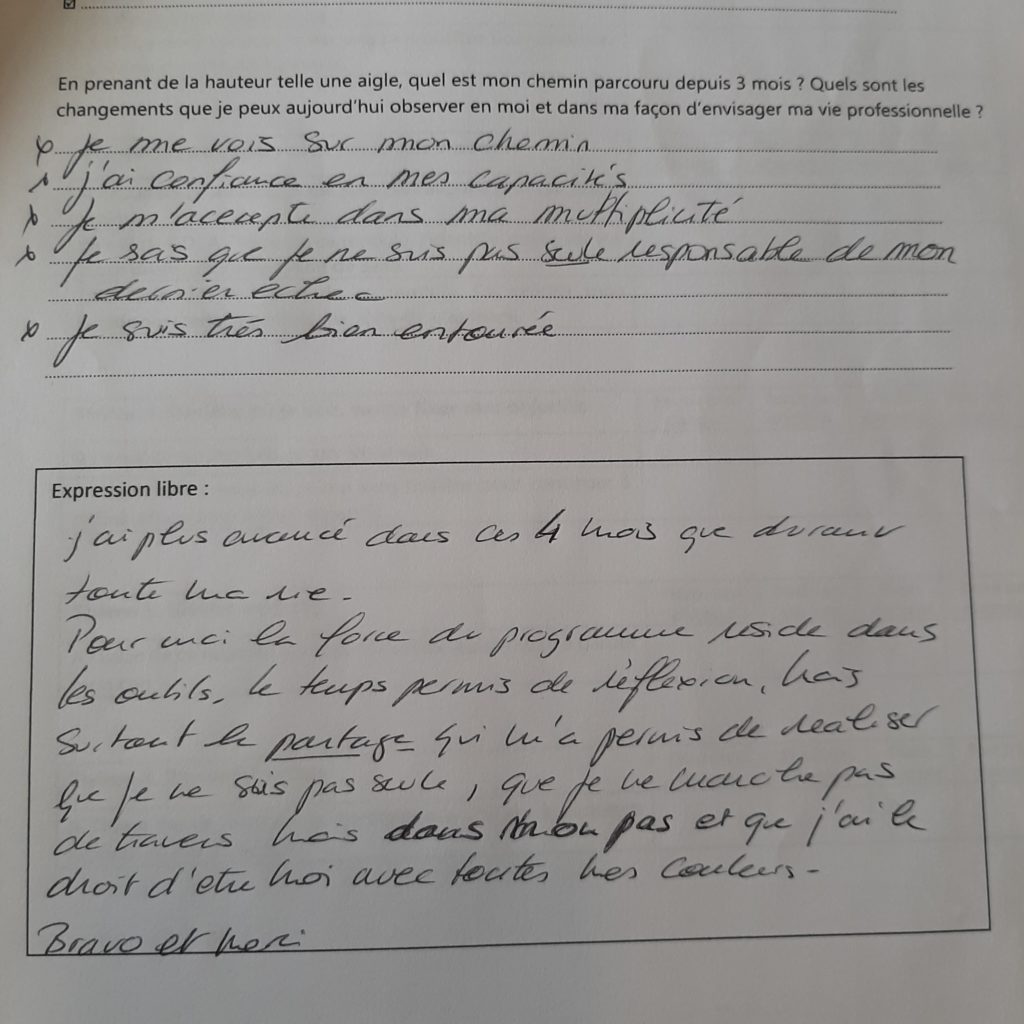 En prenant de la hauteur telle une aigle, quel est mon chemin parcouru depuis 3 mois ? Quels sont les
changements que je peux aujourd'hui observer en moi et dans ma façon d'envisager ma vie professionnelle ?
Je me vois sur mon chemin
j'ai confiance en mes capacités
Je m'acecepte dans ma multiplicité
Je sais que je ne suis pas seule responsable de mon
dernier echec
Je suis très bien entourée
Expression libre :
j'ai plus avancé dans ces 4 mois que durant
toute ma vie.
Pour moi la force du programme réside dans
les outils, le temps permis de réflexion, mais
surtout le partage qui m'a permis de realiser
que je ne suis pas seule, que je ne marche pas
de travers mais dans mon pas et que j'ai le
droit d'etre moi avec toutes mes couleurs -
Bravo et merci